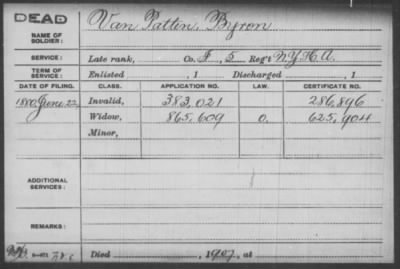 DEAD
Van Patten, Byron
NAME OF SOLDIER:
SERVICE: Late rank, Co. F, 5 Reg't N.Y.H.A.
TERM OF SERVICE: Enlisted , 1 Discharged , 1
DATE OF FILING. CLASS. APPLICATION NO. LAW. CERTIFICATE NO.
1880 June 22, Invalid, 383,021 286,896
Widow, 865,609 O. 625,904
Minor,
ADDITIONAL SERVICES:
REMARKS:
Died , 1907, at